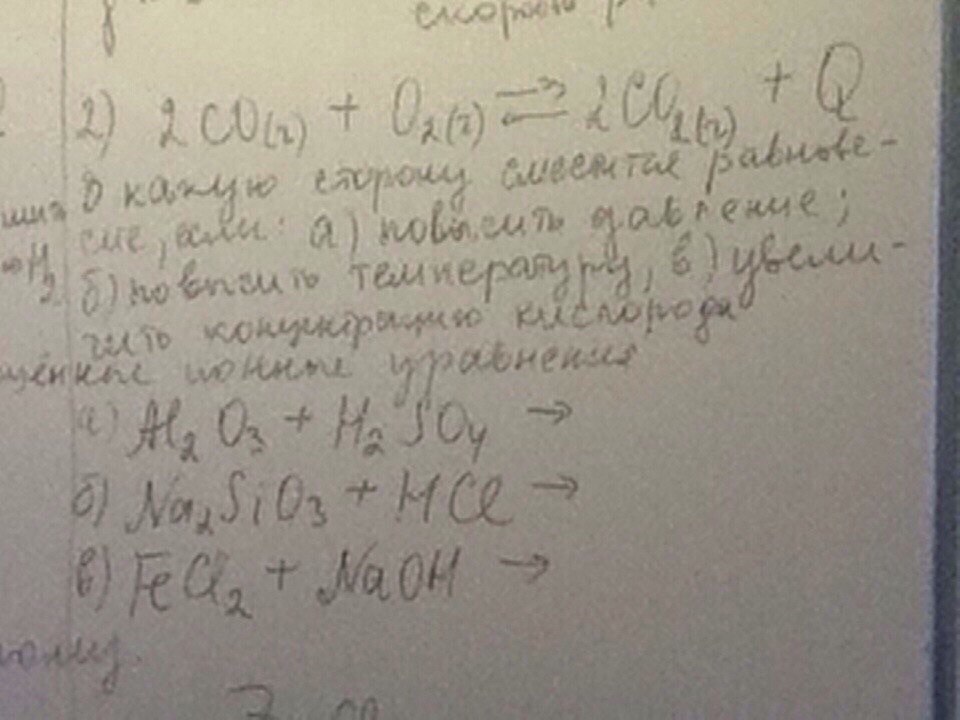 2) 2CO(г) + O₂(г) ⇄ 2CO₂(г) + Q
В какую сторону сместится равнове-
сие, если: а) повысить давление;
H₂ б) повысить температуру, в) увели-
чить концентрацию кислорода
ионные уравнения
а) Al₂O₃ + H₂SO₄ →
б) Na₂SiO₃ + HCl →
в) FeCl₂ + NaOH →